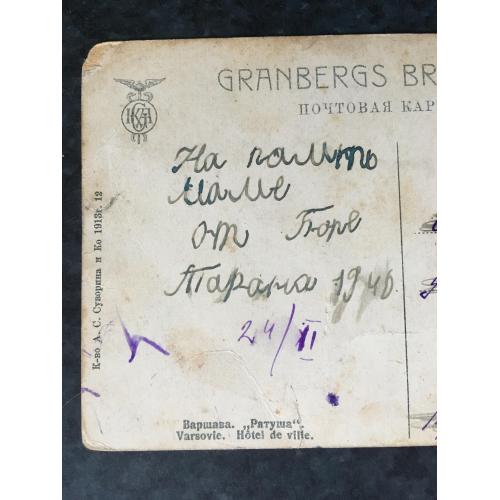 GRANBERGS BR
ПОЧТОВАЯ КАР
На память
Маме
от Боре
Тарана 1940
24/II
К-во А. С. Суворина и Ко 1913г. 12
Варшава. „Ратуша“.
Varsovie. Hôtel de ville.